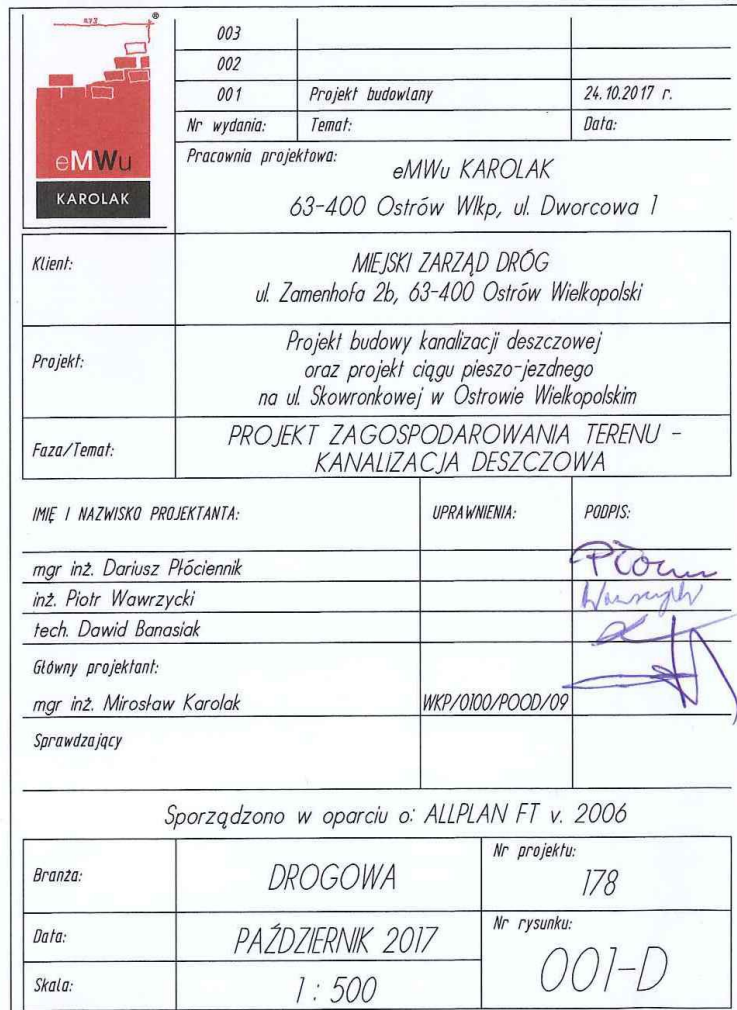 873
®
eMWu
KAROLAK
003
002
001 Projekt budowlany 24.10.2017 r.
Nr wydania: Temat: Data:
Pracownia projektowa:
eMWu KAROLAK
63-400 Ostrów Wlkp, ul. Dworcowa 1
Klient:
MIEJSKI ZARZĄD DRÓG
ul. Zamenhofa 2b, 63-400 Ostrów Wielkopolski
Projekt:
Projekt budowy kanalizacji deszczowej
oraz projekt ciągu pieszo-jezdnego
na ul. Skowronkowej w Ostrowie Wielkopolskim
Faza/Temat:
PROJEKT ZAGOSPODAROWANIA TERENU -
KANALIZACJA DESZCZOWA
IMIĘ I NAZWISKO PROJEKTANTA: UPRAWNIENIA: PODPIS:
mgr inż. Dariusz Płóciennik
inż. Piotr Wawrzycki
tech. Dawid Banasiak
Główny projektant:
mgr inż. Mirosław Karolak WKP/0100/POOD/09
Sprawdzający
Sporządzono w oparciu o: ALLPLAN FT v. 2006
Branża: DROGOWA
Nr projektu:
178
Data: PAŹDZIERNIK 2017
Nr rysunku:
001-D
Skala: 1 : 500